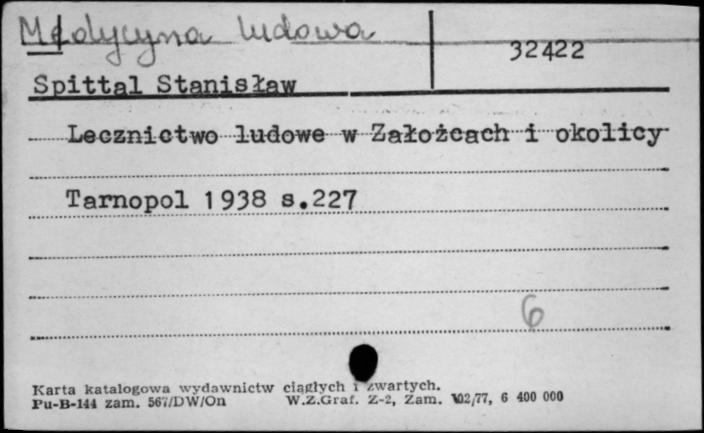 Medycyna ludowa
32422
Spittal Stanisław
Lecznictwo ludowe w Załoźcach i okolicy
Tarnopol 1938 s.227
6
Karta katalogowa wydawnictw ciągłych i zwartych.
Pu-B-144 zam. 567/DW/On W.Z.Graf. Z-2, Zam. 102/77, 6 400 000